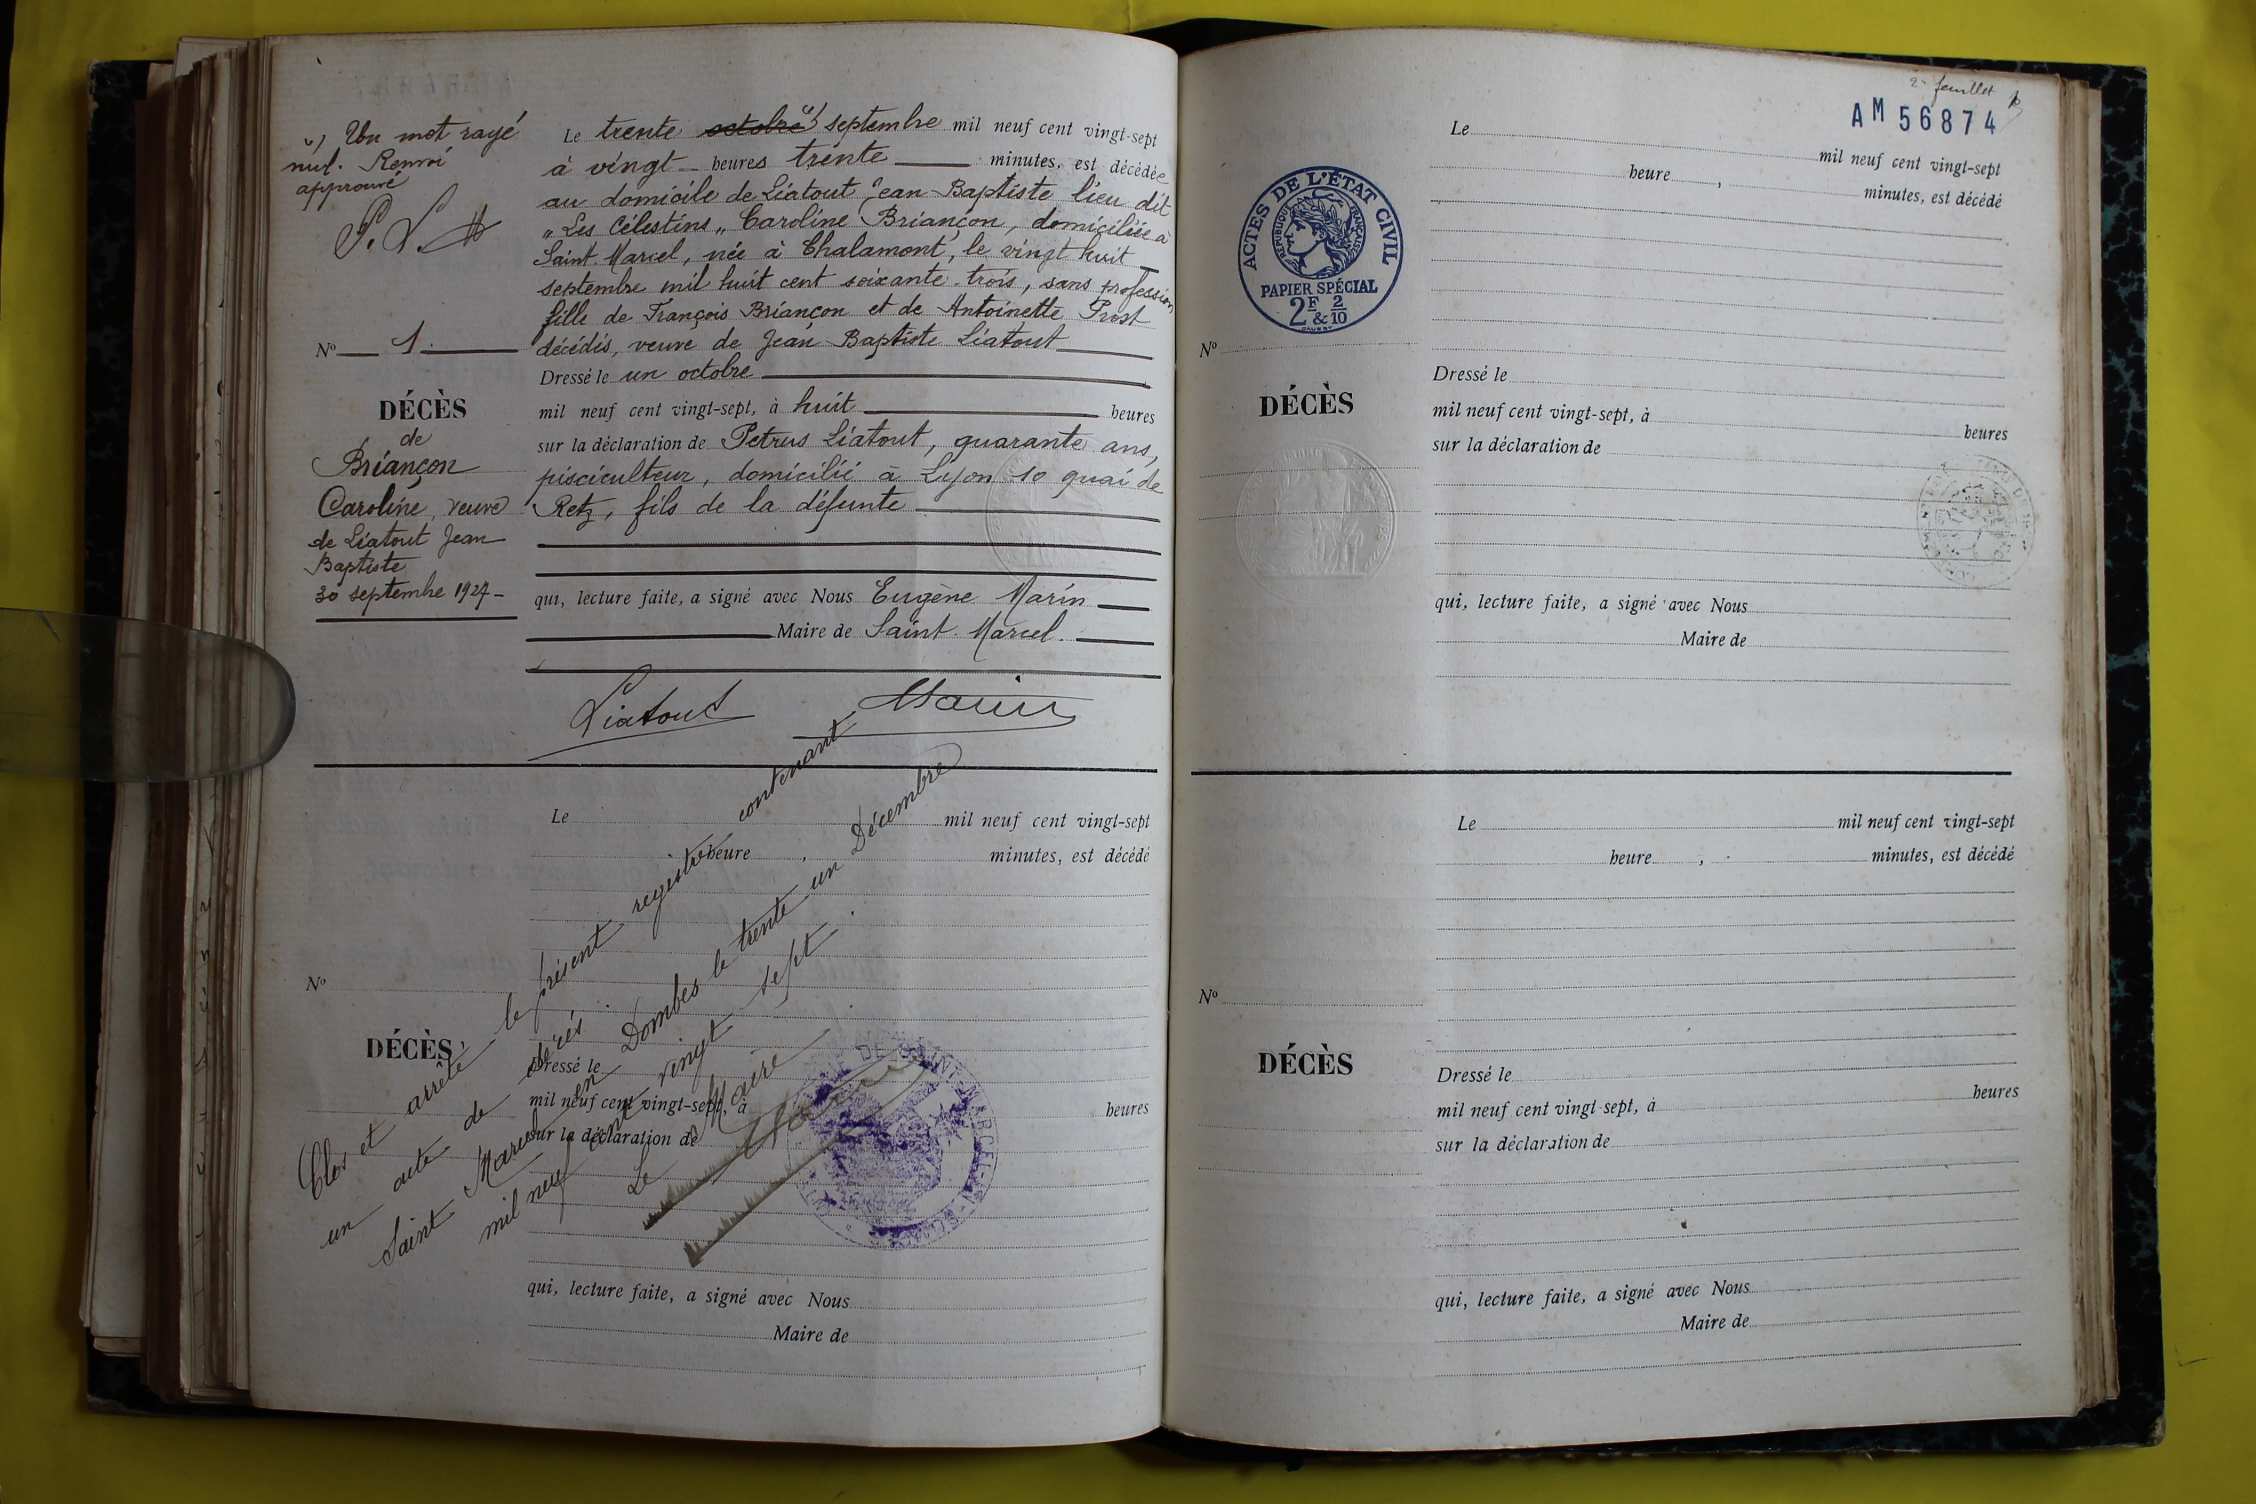 (1) Un mot rayé
nul. Renvoi
approuvé
P. L. M
Le trente octobre (1) septembre mil neuf cent vingt-sept
à vingt heures trente minutes, est décédée
au domicile de Liatout Jean-Baptiste lieu dit
"Les Célestins" Caroline Briançon, domiciliée à
Saint Marcel, née à Chalamont, le vingt huit
septembre mil huit cent soixante-trois, sans profession,
fille de François Briançon et de Antoinette Prost
décédés, veuve de Jean Baptiste Liatout
Dressé le un octobre
mil neuf cent vingt-sept, à huit heures
sur la déclaration de Petrus Liatout, quarante ans,
pisciculteur, domicilié à Lyon 10 quai de
Retz, fils de la défunte
qui, lecture faite, a signé avec Nous Eugène Marin
Maire de Saint-Marcel.
Liatout Marin
No 1.
DÉCÈS
de
Briançon
Caroline, veuve
de Liatout Jean
Baptiste
30 septembre 1927-
Le mil neuf cent vingt-sept
heure , minutes, est décédé
No
DÉCÈS
Dressé le
mil neuf cent vingt-sept, à heures
sur la déclaration de
qui, lecture faite, a signé avec Nous
Maire de
Clos et arrêté le présent registre contenant
un acte de décés.
Saint Marcel en Dombes le trente un Décembre
mil neuf cent vingt sept.
Le Maire
Marin
2e feuillet
AM 56874
ACTES DE L'ÉTAT CIVIL
RÉPUBLIQUE FRANÇAISE
PAPIER SPÉCIAL
2F & 2/10
Le mil neuf cent vingt-sept
heure , minutes, est décédé
No
DÉCÈS
Dressé le
mil neuf cent vingt-sept, à heures
sur la déclaration de
qui, lecture faite, a signé avec Nous
Maire de
Le mil neuf cent vingt-sept
heure , minutes, est décédé
No
DÉCÈS
Dressé le
mil neuf cent vingt-sept, à heures
sur la déclaration de
qui, lecture faite, a signé avec Nous
Maire de